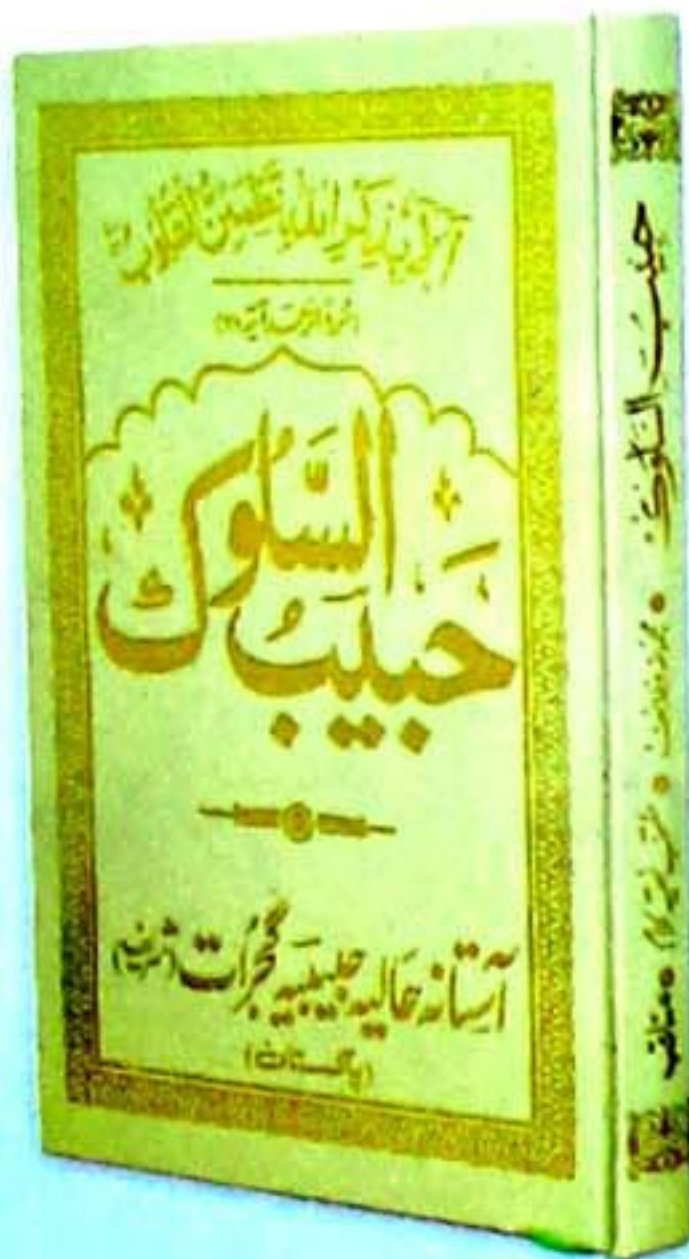 اَلَا بِذِكْرِ اللّٰهِ تَطْمَئِنُّ الْقُلُوْبُ
(سورۃ الرعد آیۃ ۲۸)
حَبِیْبُ السَّلُوک
آستانہ عالیہ حبیبیہ گجرات (شریف)
(پاکستان)
حبیبُ السلوک • مجموعہ وظائف • • مناقب